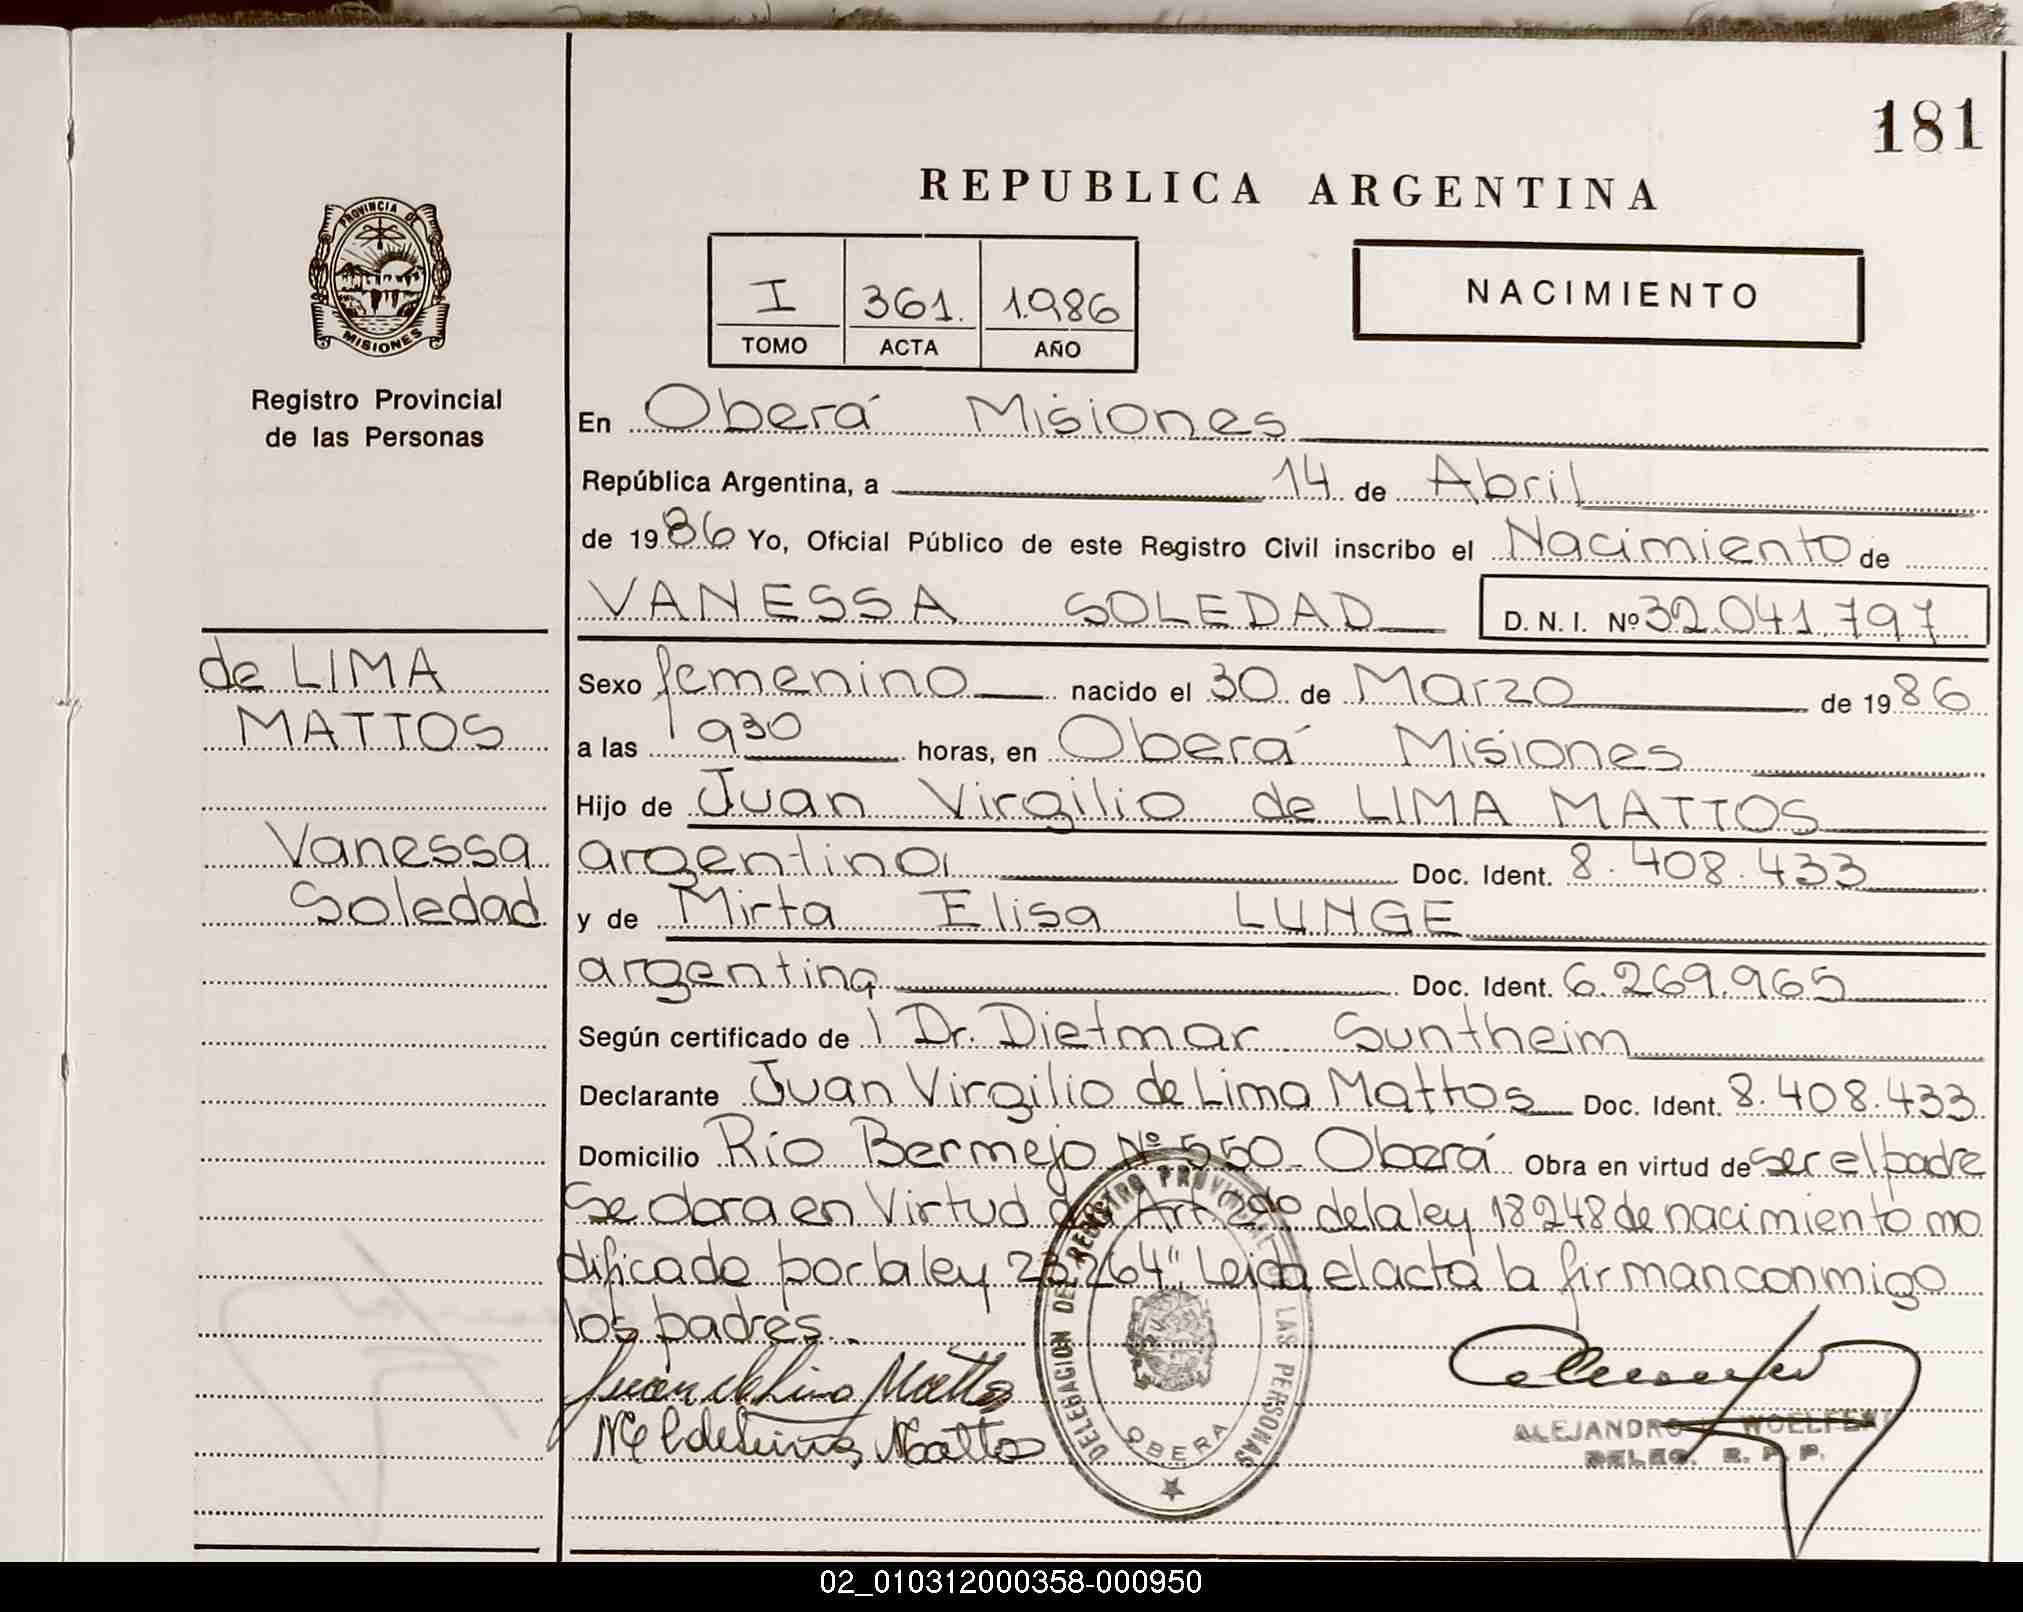 181
REPUBLICA ARGENTINA
PROVINCIA DE
MISIONES
Registro Provincial
de las Personas
I 361. 1986
TOMO ACTA AÑO
NACIMIENTO
En Oberá Misiones
República Argentina, a 14 de Abril
de 1986 Yo, Oficial Público de este Registro Civil inscribo el Nacimiento de
VANESSA SOLEDAD D. N. I. Nº 32.041.797
de LIMA
MATTOS
Vanessa
Soledad
Sexo femenino nacido el 30 de Marzo de 1986
a las 930 horas, en Oberá Misiones
Hijo de Juan Virgilio de LIMA MATTOS
argentino, Doc. Ident. 8.408.433
y de Mirta Elisa LUNGE
argentina Doc. Ident. 6.269.965
Según certificado de Dr. Dietmar Suntheim
Declarante Juan Virgilio de Lima Mattos Doc. Ident. 8.408.433
Domicilio Río Bermejo Nº 550 - Oberá Obra en virtud de ser el padre
Se obra en Virtud Art de la ley 18248 de nacimiento mo
dificado por la ley 23.264". Leida el acta la firman conmigo
los padres.
Juan de Lima Mattos
Mattos
DELEGACION DEL REGISTRO PROVINCIAL DE LAS PERSONAS
OBERA
ALEJANDRO WOELFERT
DELEG. R. P. P.
02_010312000358-000950